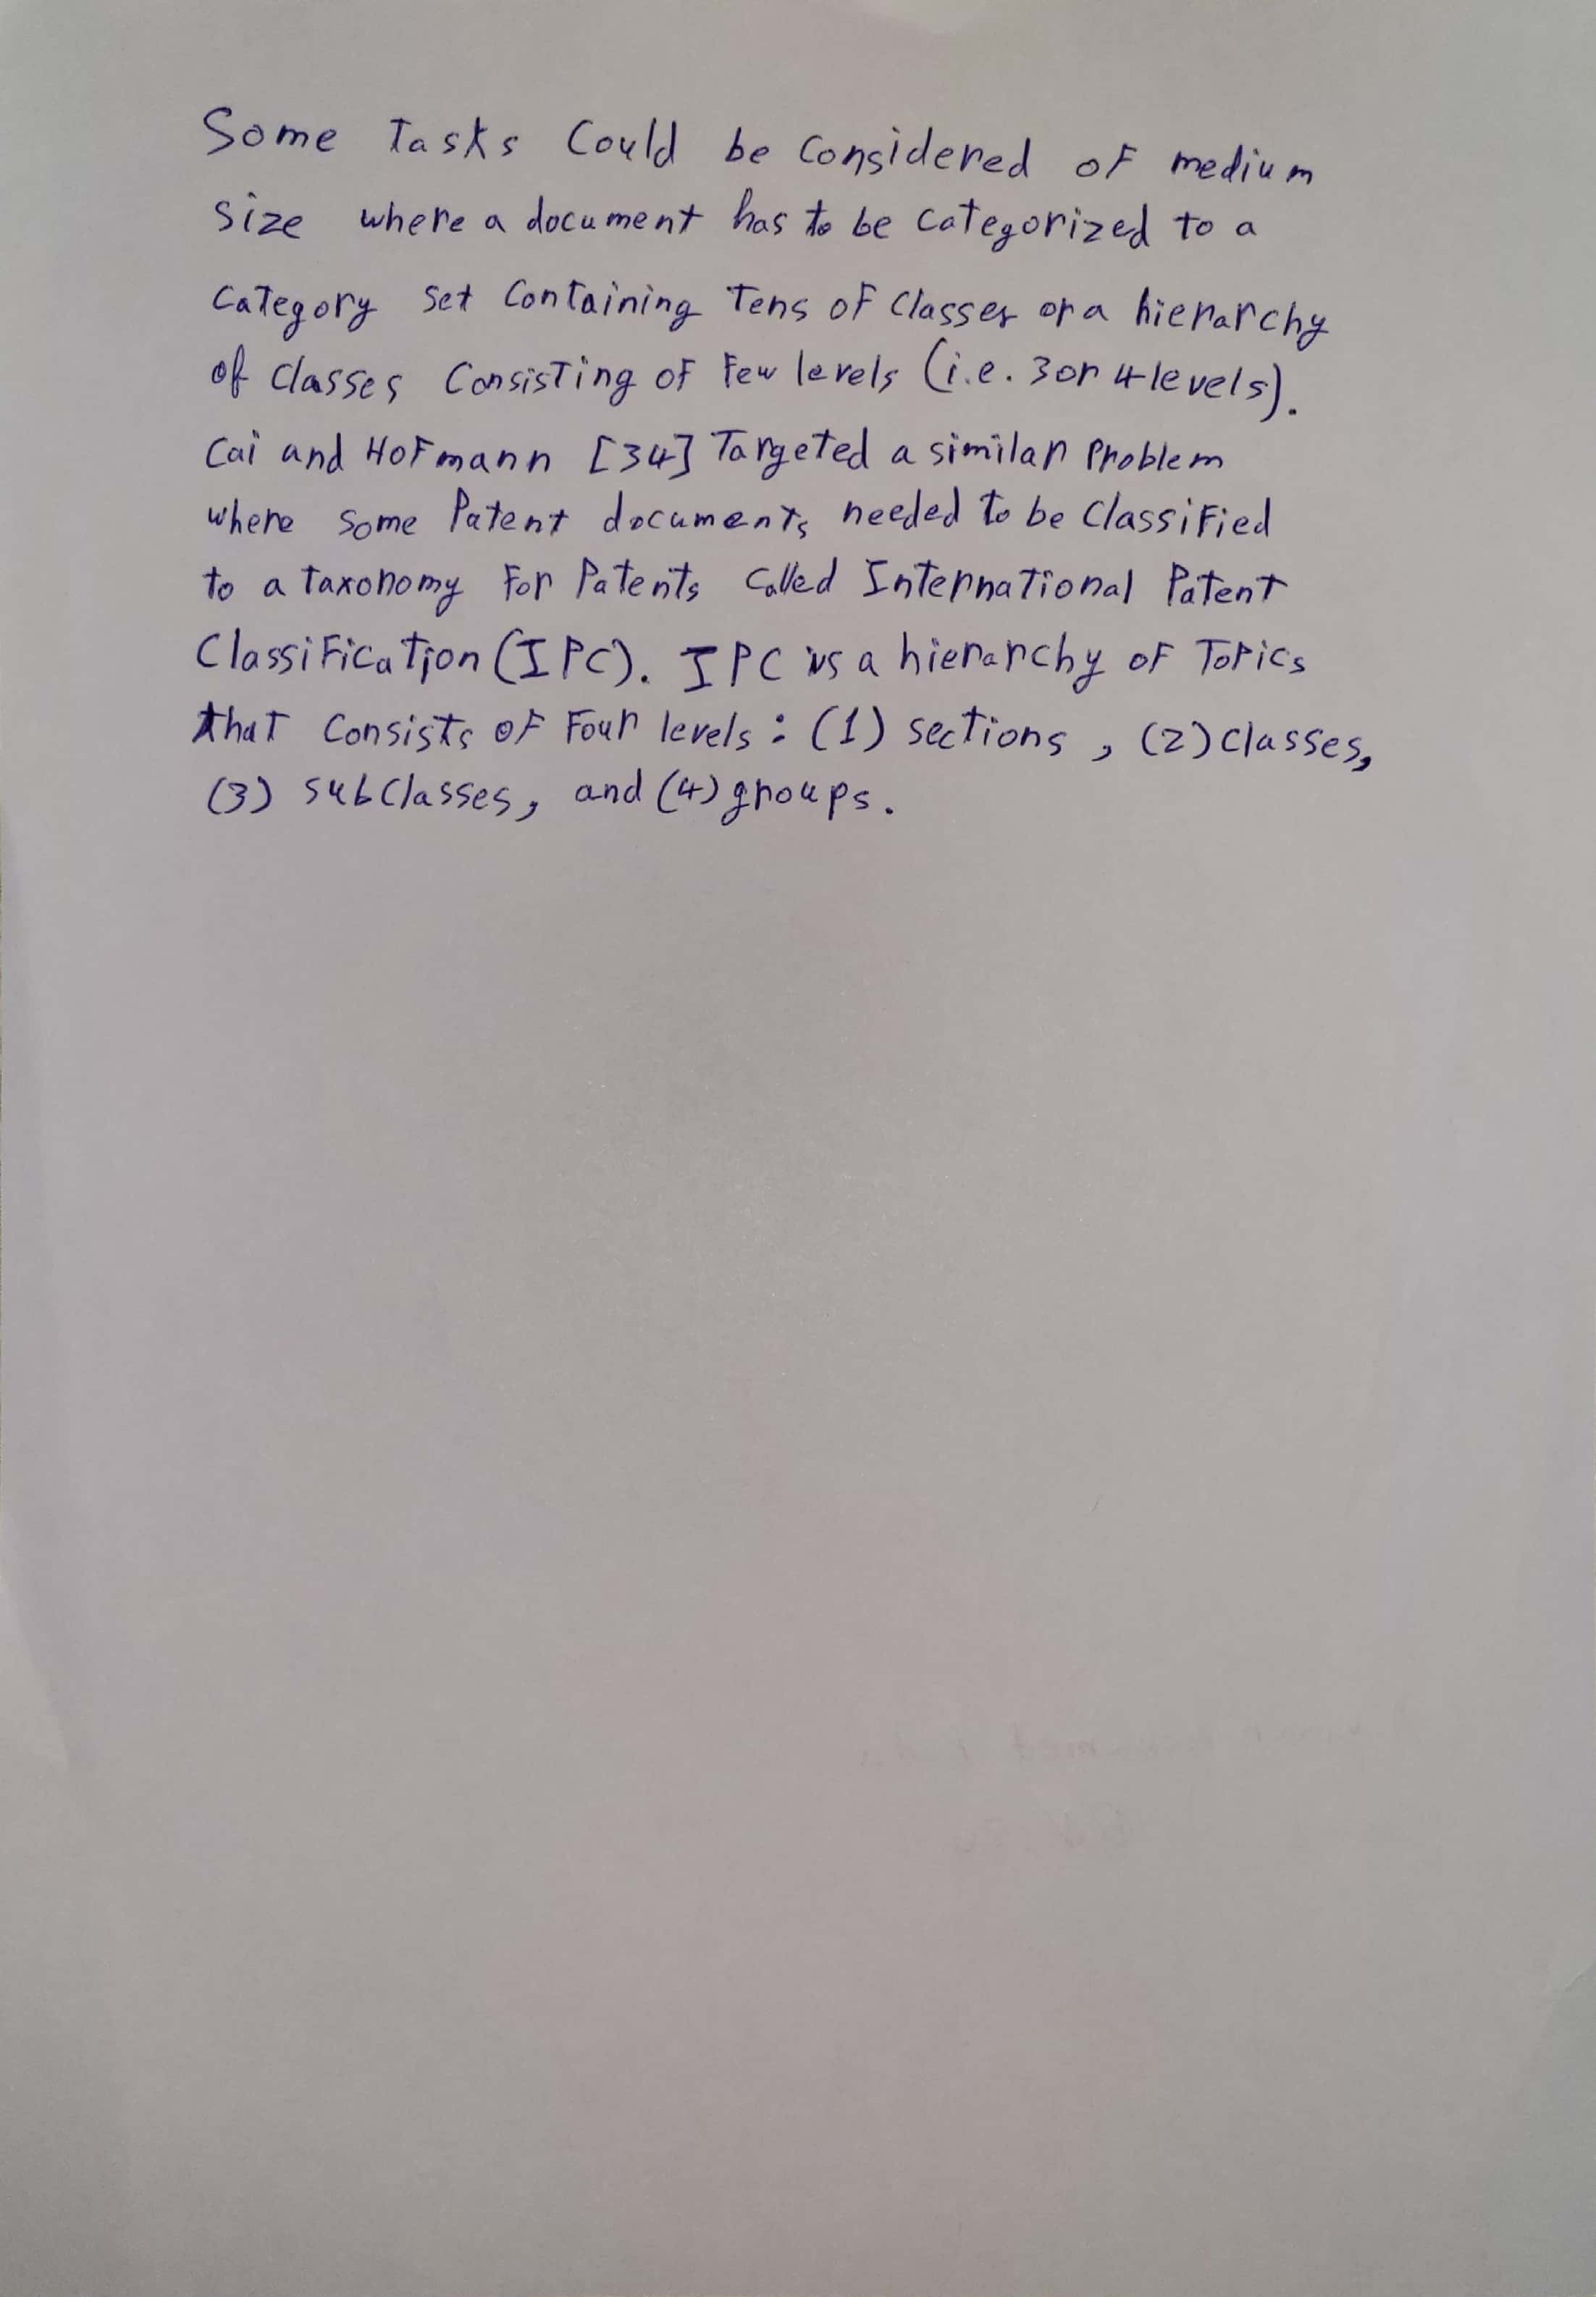 Some Tasks Could be Considered of medium
size where a document has to be categorized to a
category set containing Tens of classes or a hierarchy
of classes consisting of Few levels (i.e. 3 or 4 levels).
Cai and Hofmann [34] Targeted a similar Problem
where some Patent documents needed to be classified
to a taxonomy For Patents called International Patent
Classification (IPC). IPC is a hierarchy of Topics
that consists of Four levels: (1) sections, (2) classes,
(3) subclasses, and (4) groups.